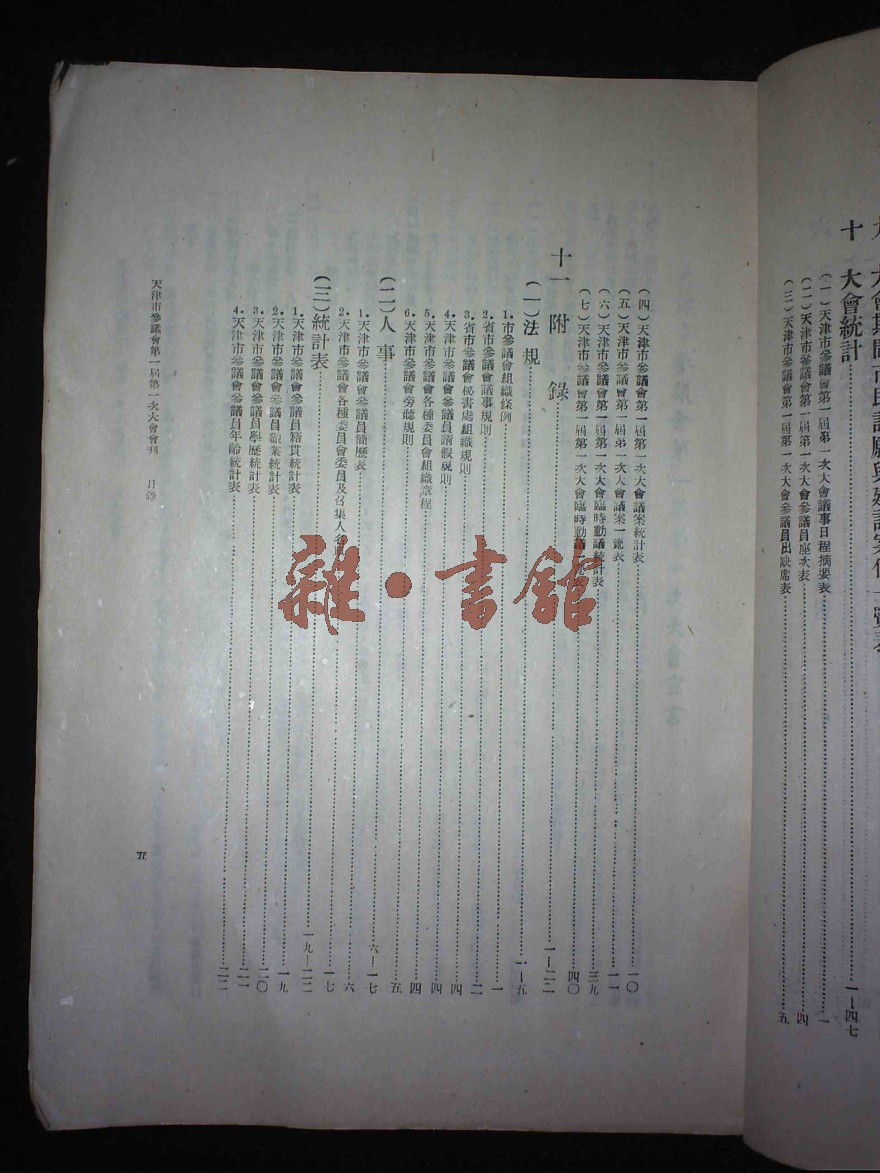 十 大會統計……一—四七
(一)天津市參議會第一屆第一次大會議事日程摘要表……一
(二)天津市參議會第一屆第一次大會參議員座次表……四
(三)天津市參議會第一屆第一次大會參議員出缺席表……五
(四)天津市參議會第一屆第一次大會議案統計表……一〇
(五)天津市參議會第一屆第一次大會議案一覽表……一一
(六)天津市參議會第一屆第一次大會臨時動議統計表……三九
(七)天津市參議會第一屆第一次大會臨時動議一覽表……四〇
十一 附錄……一—二二
(一)法規……一—五
1.市參議會組織條例……一
2.省市參議會議事規則……二
3.省市參議會秘書處組織規則……四
4.天津市參議會參議員請假規則……四
5.天津市參議會各種委員會組織章程……四
6.天津市參議會旁聽規則……五
(二)人事……六—一七
1.天津市參議會參議員簡歷表……六
2.天津市參議會各種委員會委員及召集人名……一七
(三)統計表……一九—二二
1.天津市參議會參議員籍貫統計表……一九
2.天津市參議會參議員職業統計表……二〇
3.天津市參議會參議員學歷統計表……二一
4.天津市參議會參議員年齡統計表……二二
天津市參議會第一屆第一次大會會刊 目錄
五
雜·書館